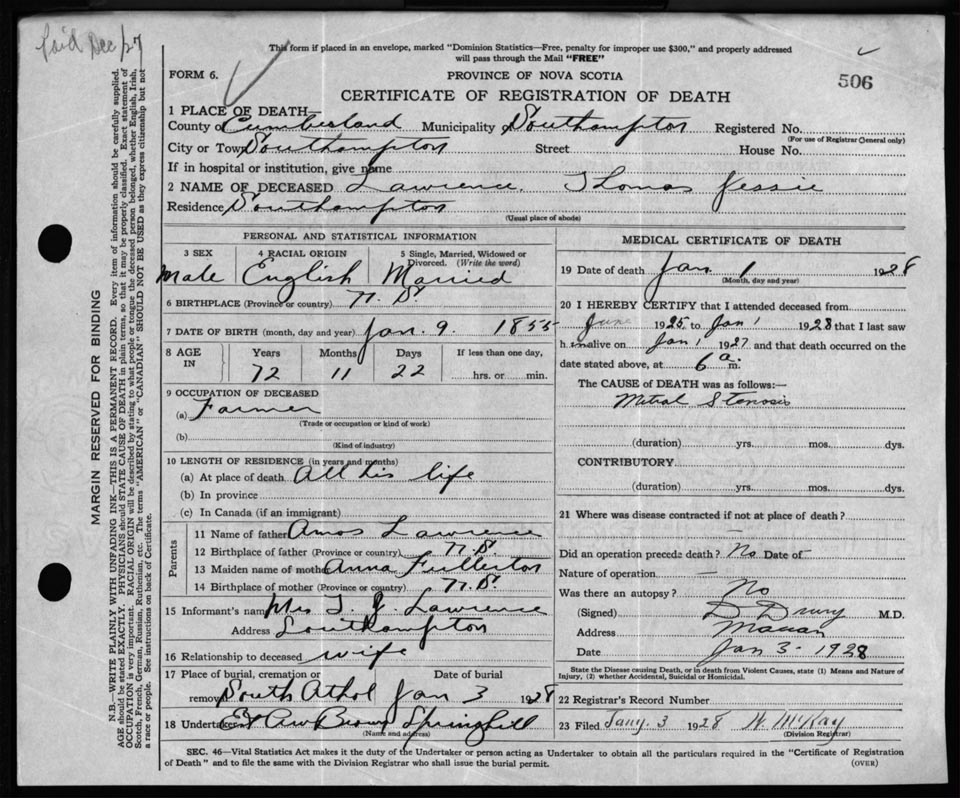 Paid Dec/27
This form if placed in an envelope, marked "Dominion Statistics—Free, penalty for improper use $300," and properly addressed
will pass through the Mail "FREE"
FORM 6.
PROVINCE OF NOVA SCOTIA
506
CERTIFICATE OF REGISTRATION OF DEATH
1 PLACE OF DEATH—
County of Cumberland Municipality Southampton Registered No.
(For use of Registrar General only)
City or Town Southampton Street House No.
If in hospital or institution, give name
2 NAME OF DECEASED Lawrence, Thomas Jessie
Residence Southampton
(Usual place of abode)
PERSONAL AND STATISTICAL INFORMATION
3 SEX 4 RACIAL ORIGIN 5 Single, Married, Widowed or
Divorced. (Write the word)
Male English Married
6 BIRTHPLACE (Province or country) N.S.
7 DATE OF BIRTH (month, day and year) Jan. 9. 1855
8 AGE IN Years Months Days If less than one day,
72 11 22 hrs. or min.
9 OCCUPATION OF DECEASED
(a) Farmer
(Trade or occupation or kind of work)
(b)
(Kind of industry)
10 LENGTH OF RESIDENCE (in years and months)
(a) At place of death All his life
(b) In province
(c) In Canada (if an immigrant)
Parents
11 Name of father Amos Lawrence
12 Birthplace of father (Province or country) N.S.
13 Maiden name of mother Anna Fullerton
14 Birthplace of mother (Province or country) N.S.
15 Informant's name Mrs T. J. Lawrence
Address Southampton
16 Relationship to deceased wife
17 Place of burial, cremation or Date of burial
removal South Athol Jan 3 1928
18 Undertaker Brown Springhill
(Name and address)
MEDICAL CERTIFICATE OF DEATH
19 Date of death Jan. 1 1928
(Month, day and year)
20 I HEREBY CERTIFY that I attended deceased from
June 1925 to Jan 1 1928 that I last saw
him alive on Jan 1 1927 and that death occurred on the
date stated above, at 6 a. m.
The CAUSE OF DEATH was as follows:—
Mitral Stenosis
(duration) yrs. mos. dys.
CONTRIBUTORY
(duration) yrs. mos. dys.
21 Where was disease contracted if not at place of death?
Did an operation precede death? No Date of —
Nature of operation —
Was there an autopsy? No
(Signed) D Drury M.D.
Address Maccan
Date Jan 3 - 1928
State the Disease causing Death, or in death from Violent Causes, state (1) Means and Nature of
Injury, (2) whether Accidental, Suicidal or Homicidal.
22 Registrar's Record Number
23 Filed Jany. 3 1928 W. McKay
(Division Registrar)
SEC. 46—Vital Statistics Act makes it the duty of the Undertaker or person acting as Undertaker to obtain all the particulars required in the "Certificate of Registration
of Death" and to file the same with the Division Registrar who shall issue the burial permit.
(OVER)
MARGIN RESERVED FOR BINDING
N.B.—WRITE PLAINLY WITH UNFADING INK—THIS IS A PERMANENT RECORD. Every item of information should be carefully supplied.
AGE should be stated EXACTLY. PHYSICIANS should STATE CAUSE OF DEATH in plain terms, so that it may be properly classified. Exact statement of
OCCUPATION is very important. RACIAL ORIGIN will be described by stating to what people or tongue the deceased person belonged, whether English, Irish,
Scotch, French, German, Russian, Ruthenian, etc. The terms "AMERICAN" or "CANADIAN" SHOULD NOT BE USED as they express citizenship but not
a race or people. See instructions on back of Certificate.